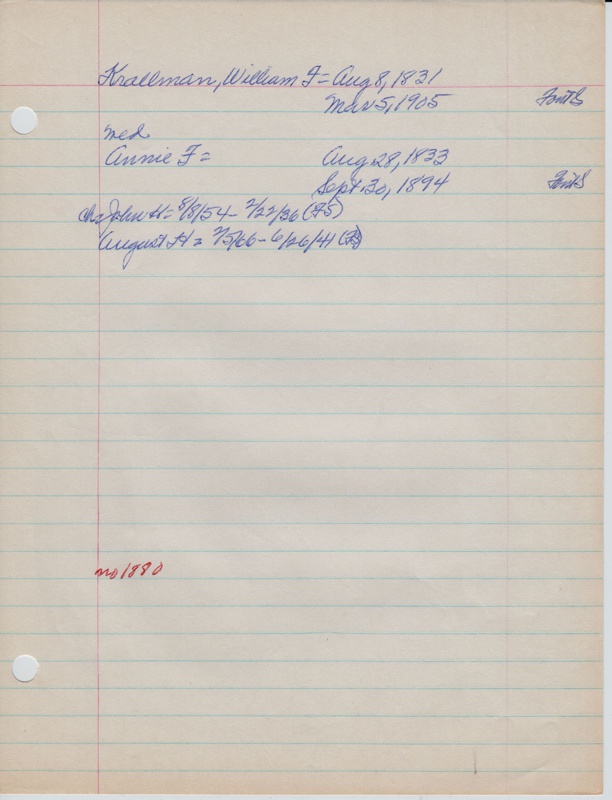 Krallman, William F = Aug 8, 1831
Mar 5, 1905 FontS
med
Annie F = Aug 28, 1833
Sept 30, 1894 FontS
ch = John H = 8/8/54 - 2/22/36 (FS)
August H = 2/5/66 - 6/26/41
no 1880